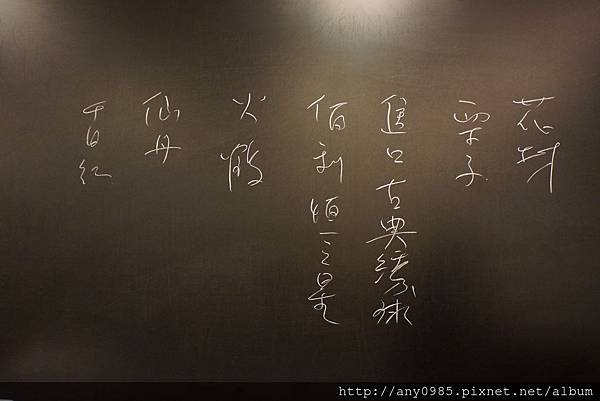 花材
栗子
進口古典繡球
佰利恆之星
火鶴
仙丹
千日紅
http://any0985.pixnet.net/album